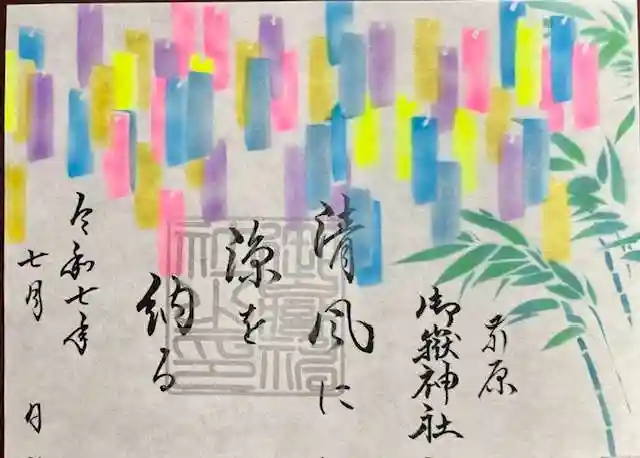 前原
御嶽神社
清風に
涼を
納る
令和七年
七月 日